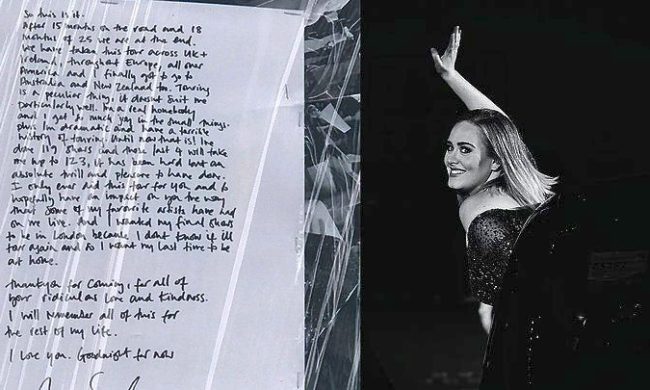 So this is it.
After 15 months on the road and 18
months of 25 we are at the end.
We have taken this tour across UK +
Ireland, throughout Europe, all over
America and I finally got to go to
Australia and New Zealand too. Touring
is a peculiar thing, it doesn't suit me
particularly well. I'm a real homebody
and I get so much joy in the small things.
Plus I'm dramatic and have a terrible
history of touring. Until now that is! I've
done 119 shows and these last 4 will take
me up to 123, it has been hard but an
absolute thrill and pleasure to have done.
I only ever did this tour for you and to
hopefully have an impact on you the way
that some of my favorite artists have had
on me live. And I wanted my final shows
to be in London because I don't know if I'll
tour again and so I want my last time to be
at home.
Thankyou for coming, for all of
your ridiculous love and kindness.
I will remember all of this for
the rest of my life.
I love you. Goodnight for now